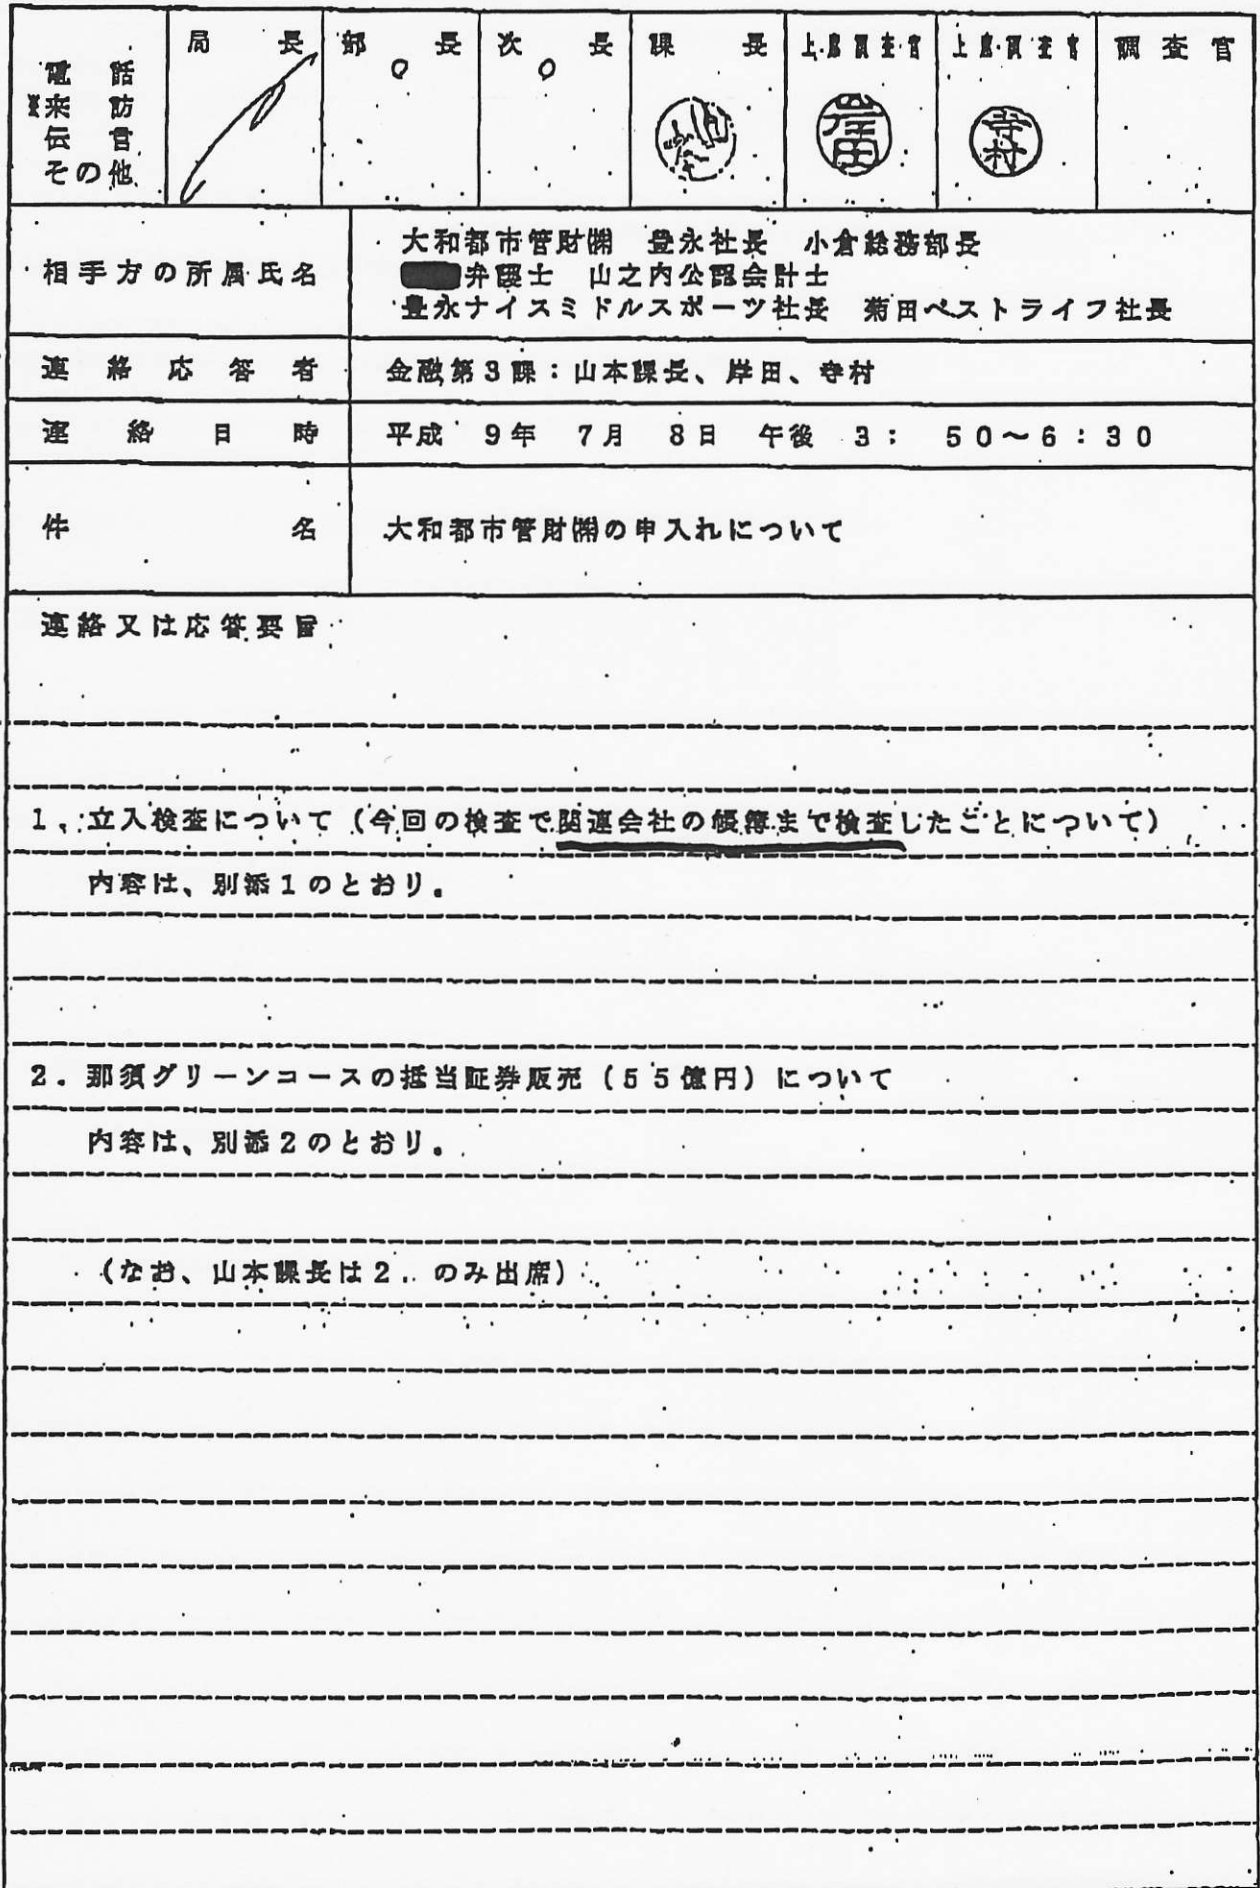 局長 部長 次長 課長 上席調査官 上席調査官 調査官
電話
※来訪
伝言
その他
岸田
寺村
相手方の所属氏名
大和都市管財㈱ 豊永社長 小倉総務部長
弁護士 山之内公認会計士
豊永ナイスミドルスポーツ社長 菊田ベストライフ社長
連絡応答者 金融第3課:山本課長、岸田、寺村
連絡日時 平成 9年 7月 8日 午後 3: 50~6:30
件名 大和都市管財㈱の申入れについて
連絡又は応答要旨
1.立入検査について(今回の検査で関連会社の帳簿まで検査したことについて)
内容は、別添1のとおり。
2.那須グリーンコースの抵当証券販売(55億円)について
内容は、別添2のとおり。
(なお、山本課長は2.のみ出席)